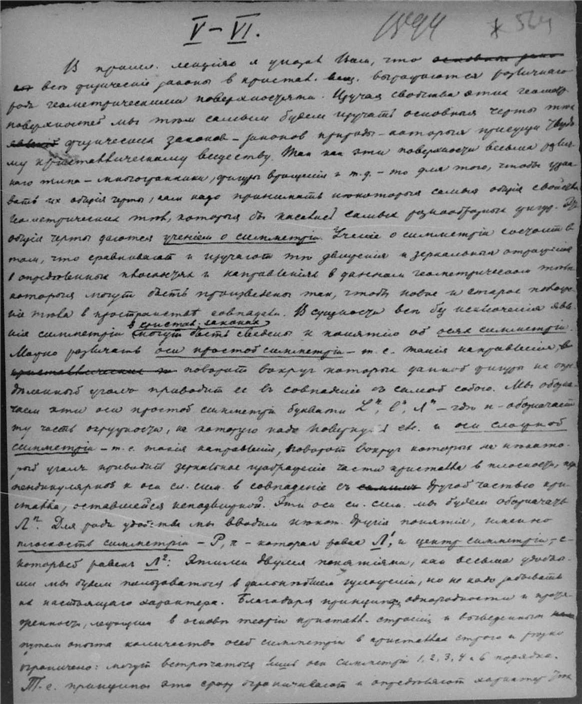 V–VI.
1894
* 564
В прошл. лекцiю я указал Вам, что
все физическiе законы в кристал. вещ. выражаются различнаго
рода геометрическими поверхностями. Изучая свойства этих геомет.
поверхностей мы тем самым будем изучать основныя черты тех
физических законов – законов природы – которые присущи
кристаллическому веществу. Так как эти поверхности весьма
типа – многогранники, фигуры вращенiя и т.д. – то для того, чтобы
их общiя черты, нам надо принимать некоторыя самыя общiя свойства
геометрических тел, которыя бы касались самых разнообразных фигур.
общiя черты даются ученiем о симметрiи. Ученiе о симметрiи состоит в
том, что сравнивает и изучает те движенiя и зеркальныя отраженiя
в определенных плоскостях и направленiях в данном геометрическом теле
которыя могут быть произведены так, чтобы новое и старое
тела в пространстве совпадали. В сущности все без исключенiя
симметрiи в кристал. могут быть сведены к понятiю об осях симметрiи.
Можно различать оси простой симметрiи – т.е. такiя направленiя,
поворот вокруг которых данной фигуры на
угол приводит ее в совпаденiе с самой собою. Мы
эти оси простой симметрiи буквами Lⁿ, lⁿ, Λⁿ – где n обозначает
ту часть окружности, на которую надо повернуть и оси сложной
симметрiи – т.е. такiя направленiя, поворот вокруг которых на
угол приводит зеркальное изображенiе части кристалла в плоскости,
к оси си. в совпаденiе с другой частью
оставшейся неподвижной. Эти оси сл. сим. мы будем обозначать
Λⁿ. Для ради удобства мы вводим некот. другiя понятiя, именно
плоскость симметрiи – P, – которая равна Λ¹, и центр симметрiи, – C
который равен Λ²: Этими двумя понятiями, как весьма
мы будем пользоваться в дальнейшем, но не надо забывать
их настоящаго характера. Благодаря принципу однородности и
лежащих в основе теорiи кристал. строенiя и выведенных
путем опыта количество осей симметрiи в кристаллах строго и резко
ограничено: могут встречаться лишь оси симметрiи 1, 2, 3, 4 и 6 порядка.
Т.е. принципы эти сразу ограничивают и определяют характер